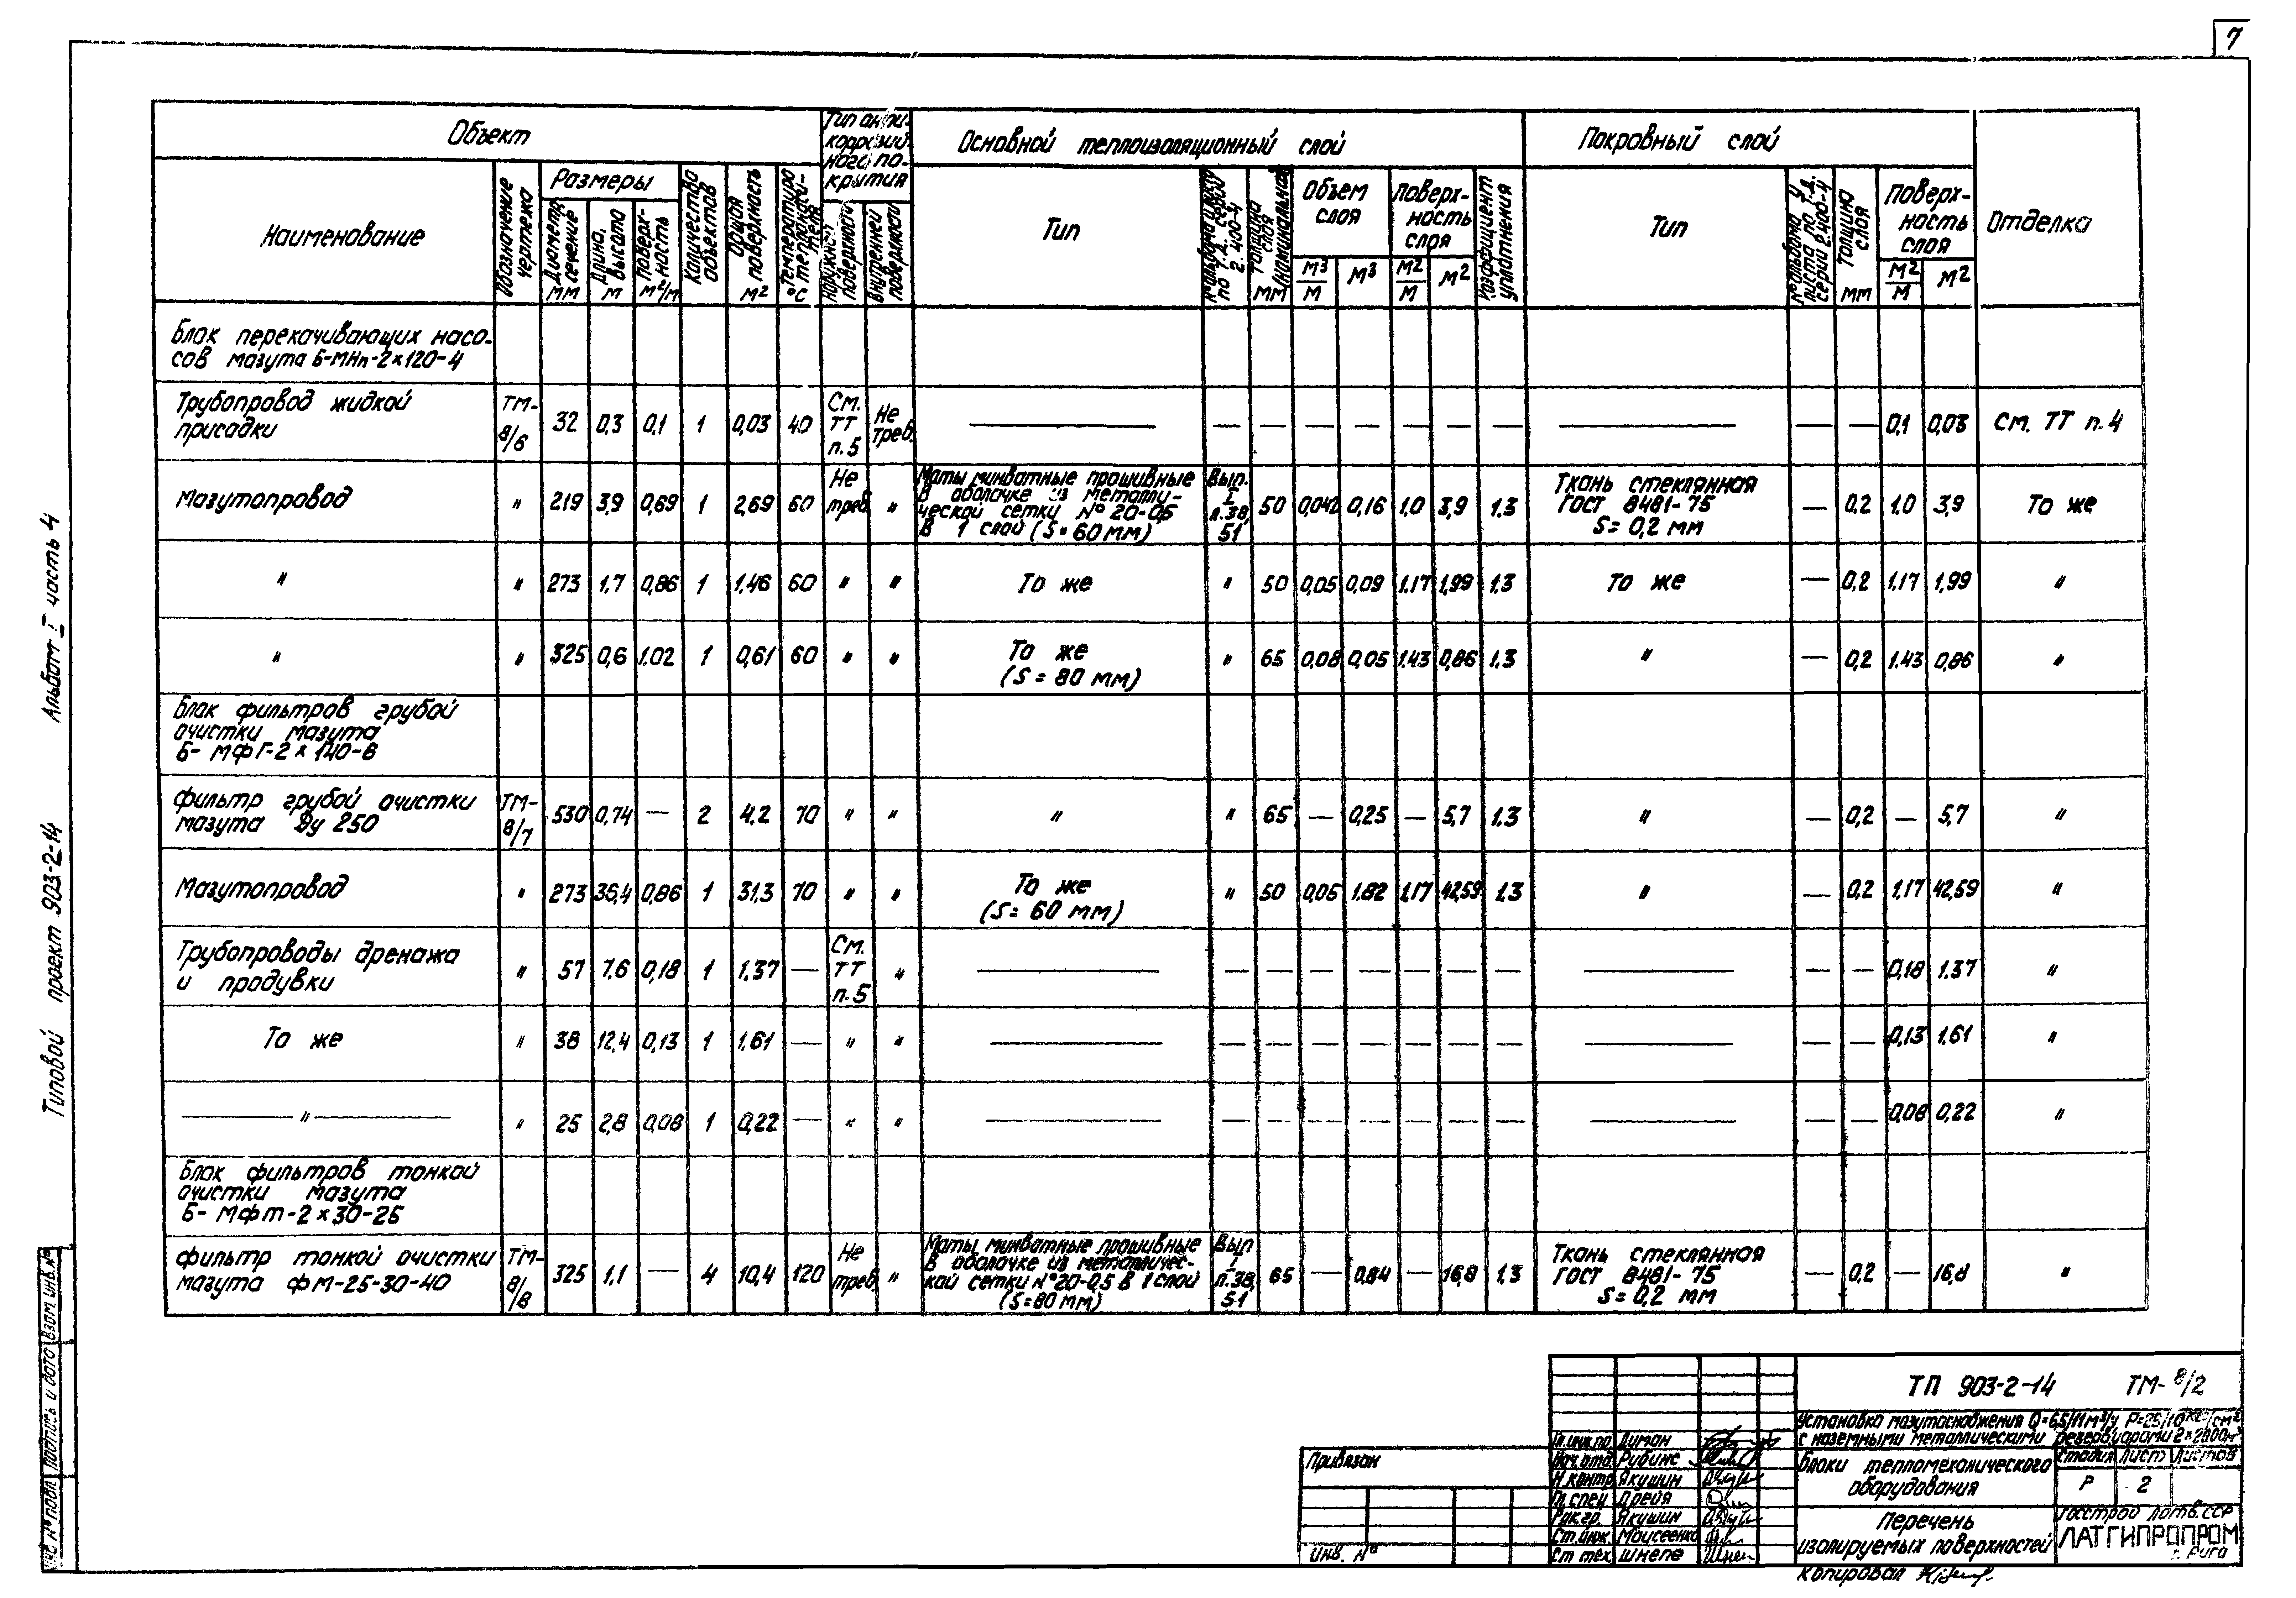 7
Альбом I часть 4
Типовой проект 903-2-14
Объект
Тип анти-
коррозий-
ного по-
крытия
Основной теплоизоляционный слой
Покровный слой
Отделка
Наименование
Обозначение
чертежа
Размеры
Диаметр,
сечение
мм
Длина,
высота
м
Поверх-
ность
м²/м
Количество
объектов
Общая
поверхность
м²
Температура
теплоноси-
теля
°С
Наружной
поверхности
Внутренней
поверхности
Тип
мм
Объем
слоя
м³/м
м³
Поверх-
ность
слоя
м²/м
м²
Коэффициент
уплотнения
Тип
Толщина
слоя
мм
Поверх-
ность
слоя
м²/м
м²
Блок перекачивающих насо-
сов мазута Б-МНп-2×120-4
Трубопровод жидкой
присадки
ТМ-8/6 32 0,3 0,1 1 0,03 40 См. ТТ п.5 Не треб. — — — — — — — — — — — 0,1 0,03 См. ТТ п.4
Мазутопровод " 219 3,9 0,69 1 2,69 60 Не треб. "
Маты минватные прошивные
в оболочке из металли-
ческой сетки № 20-0,5
в 1 слой (S=60мм)
Вып. I л.38, 51 50 0,042 0,16 1,0 3,9 1.3
Ткань стеклянная
ГОСТ 8481-75
S=0,2 мм
— 0,2 1.0 3,9 То же
" " 273 1,7 0,86 1 1,46 60 " " То же " 50 0,05 0,09 1,17 1,99 1.3 То же — 0,2 1,17 1,99 "
" " 325 0,6 1,02 1 0,61 60 " " То же
(S = 80 мм)
" 65 0,08 0,05 1,43 0,86 1.3 " — 0,2 1.43 0,86 "
Блок фильтров грубой
очистки мазута
Б-МФГ-2×140-6
Фильтр грубой очистки
мазута Ду 250
ТМ-8/7 530 0,74 — 2 4.2 70 " " " " 65 — 0,25 — 5,7 1.3 " — 0,2 — 5,7 "
Мазутопровод " 273 36,4 0,86 1 31,3 70 " " То же
(S= 60 мм)
" 50 0,05 1.82 1,17 42,59 1.3 " — 0,2 1,17 42,59 "
Трубопроводы дренажа
и продувки
" 57 7,6 0,18 1 1.37 — См. ТТ п.5 " — — — — — — — — — — — 0,18 1.37 "
То же " 38 12,4 0,13 1 1,61 — " " — — — — — — — — — — — 0,13 1.61 "
— " — " 25 2,8 0,08 1 0,22 — " " — — — — — — — — — — — 0,08 0,22 "
Блок фильтров тонкой
очистки мазута
Б-МФТ-2×30-25
Фильтр тонкой очистки
мазута ФМ-25-30-40
ТМ-8/8 325 1,1 — 4 10,4 120 Не треб. "
Маты минватные прошивные
в оболочке из металличес-
кой сетки №20-0,5 в 1 слой
(S=80мм)
Вып I л.38, 51 65 — 0,84 — 16,8 1,3
Ткань стеклянная
ГОСТ 8481-75
S=0,2 мм
— 0,2 — 16,8 "
Взам. инв. №
Подпись и дата
Инв № подл
Привязан
Инв. №
Гл.инж.пр Думан
Нач.отд Рубинс
Н.контр Якушин
Гл.спец Дрейя
Рук.гр. Якушин
Ст.инж. Моисеенко
Ст тех. Шнепе
ТП 903-2-14 ТМ-8/2
Установка мазутоснабжения Q=6,5/11м³/ч, P=25/10кгс/см²
с наземными металлическими резервуарами 2×2000м³
Блоки тепломеханического
оборудования
Стадия Лист Листов
Р 2
Перечень
изолируемых поверхностей
Госстрой Латв.ССР
ЛАТГИПРОПРОМ
г. Рига
Копировал